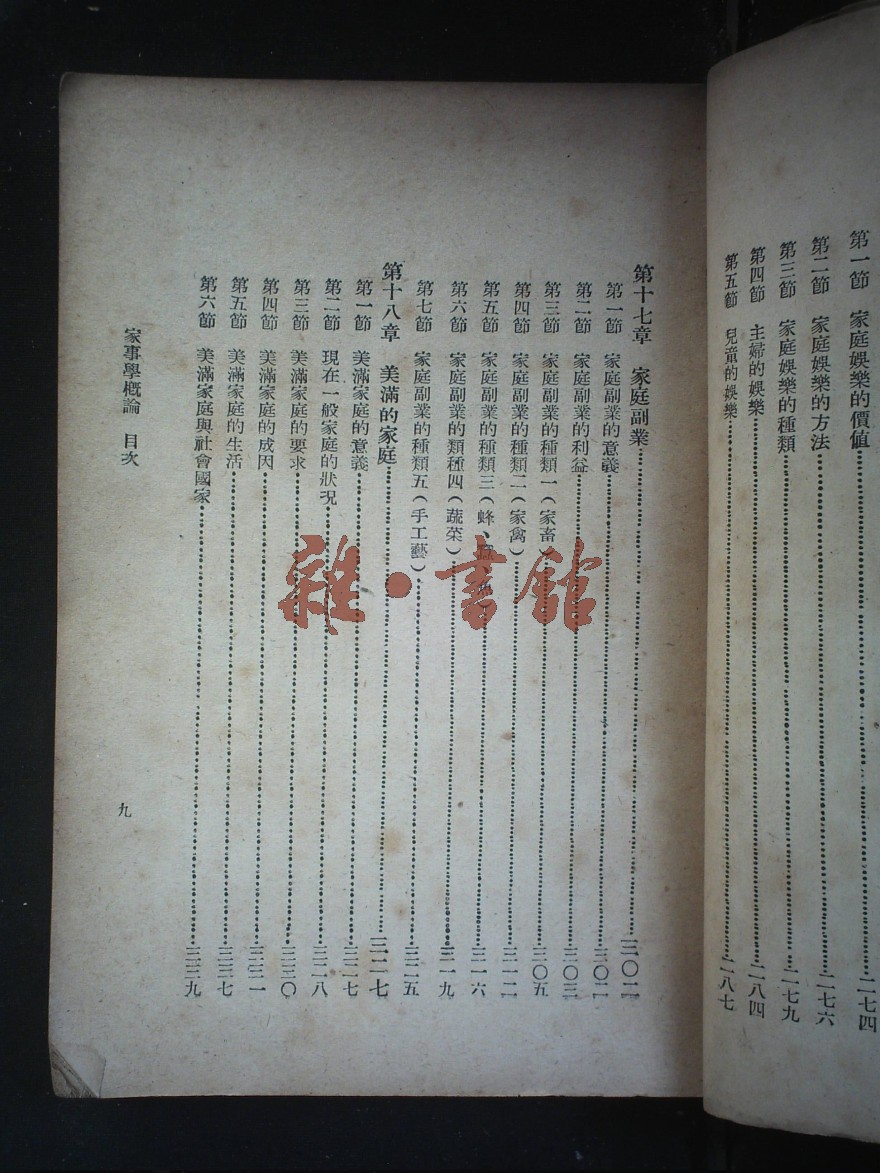 第一節 家庭娛樂的價値……二七四
第二節 家庭娛樂的方法……二七六
第三節 家庭娛樂的種類……二七九
第四節 主婦的娛樂……二八四
第五節 兒童的娛樂……二八七
第十七章 家庭副業……三〇二
第一節 家庭副業的意義……三〇二
第二節 家庭副業的利益……三〇三
第三節 家庭副業的種類一(家畜)……三〇五
第四節 家庭副業的種類二(家禽)……三一二
第五節 家庭副業的種類三(蜂、……三一六
第六節 家庭副業的類種四(蔬菜)……三一九
第七節 家庭副業的種類五(手工藝)……三二五
第十八章 美滿的家庭……三二七
第一節 美滿家庭的意義……三二七
第二節 現在一般家庭的狀况……三二八
第三節 美滿家庭的要求……三三〇
第四節 美滿家庭的成因……三三一
第五節 美滿家庭的生活……三三七
第六節 美滿家庭與社會國家……三三九
家事學概論 目次
九
雜·書館